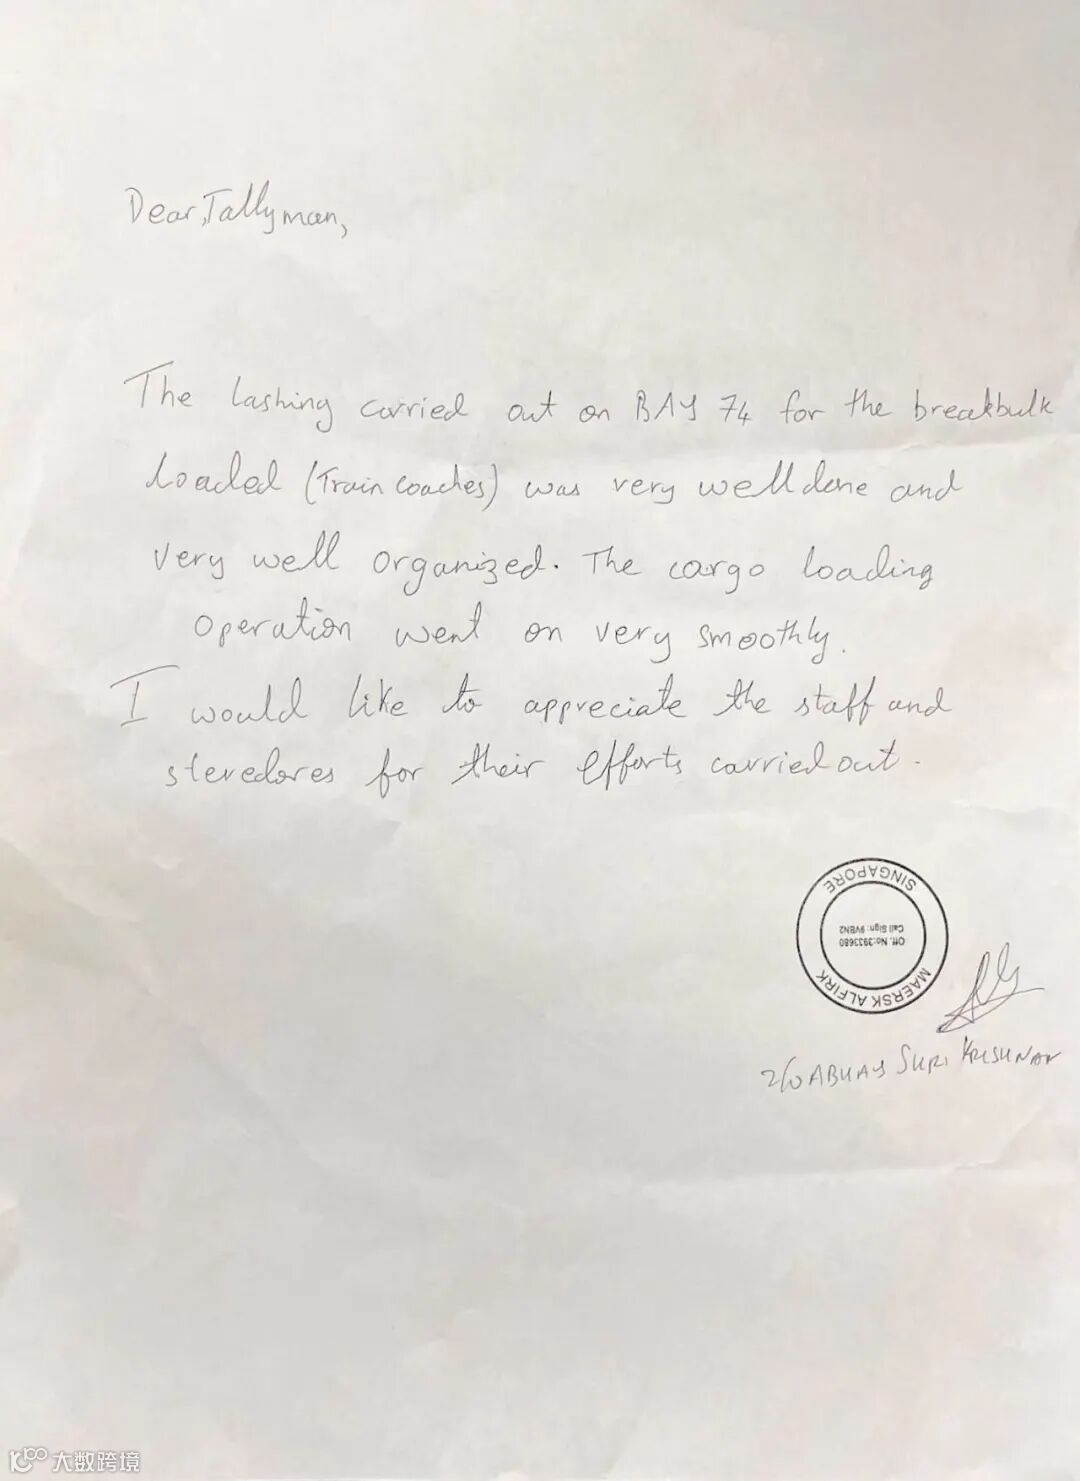 Dear, Tallyman,
The lashing carried out on BAY 74 for the breakbulk
loaded (Train coaches) was very well done and
very well organized. The cargo loading
operation went on very smoothly.
I would like to appreciate the staff and
stevedores for their efforts carried out.
SINGAPORE
Off. No:3933680
Call Sign: 9VBN2
MAERSK ALFIRK
2/O ABHAY
大数跨境